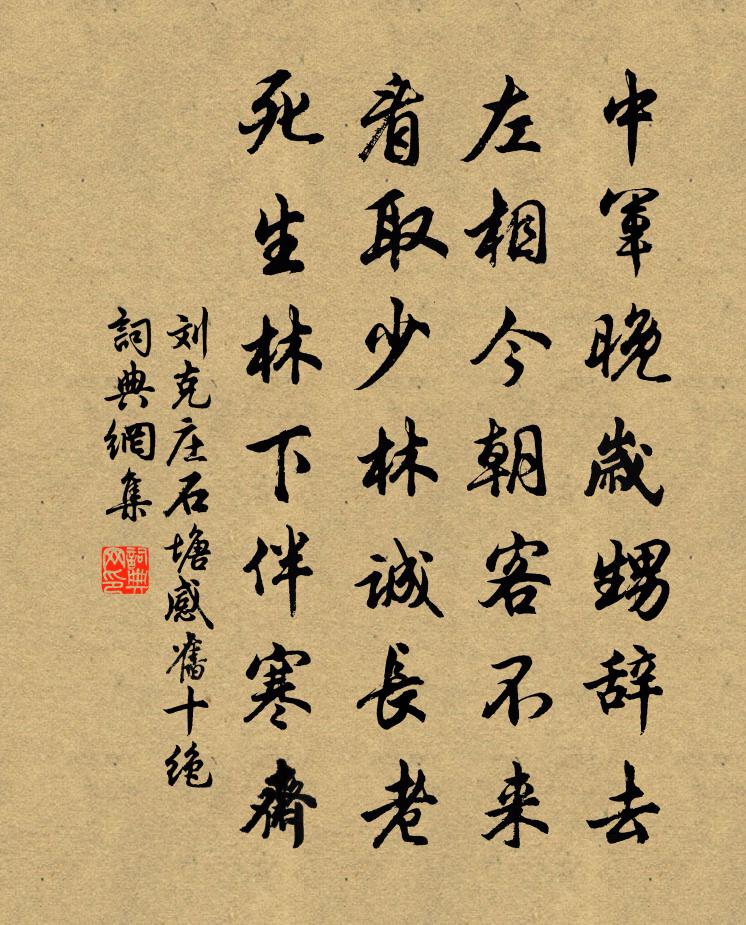 中軍晚歲甥辞去
左相今朝客不来
看取少林誠長老
死生林下伴寒齋
刘克庄石塘感舊十绝
詞典網集
詞典网印